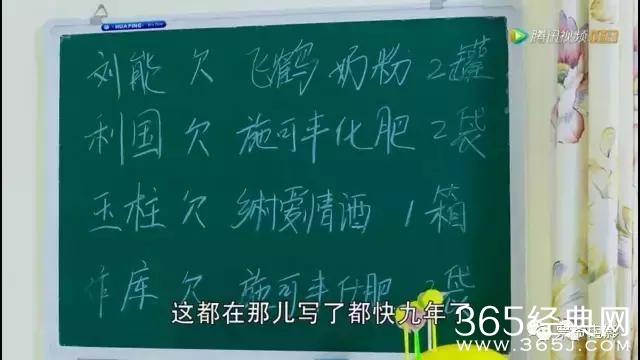 HUAPING
腾讯视频
刘能 欠 飞鹤 奶粉 2罐
利国 欠 施可丰化肥 2袋
玉柱 欠 乡村爱情酒 1箱
作库 欠 施可丰化肥 2袋
这都在那儿写了都快九年了
365经典网
WWW.365J.COM